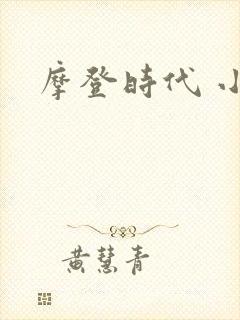 摩登時代
黃慧青